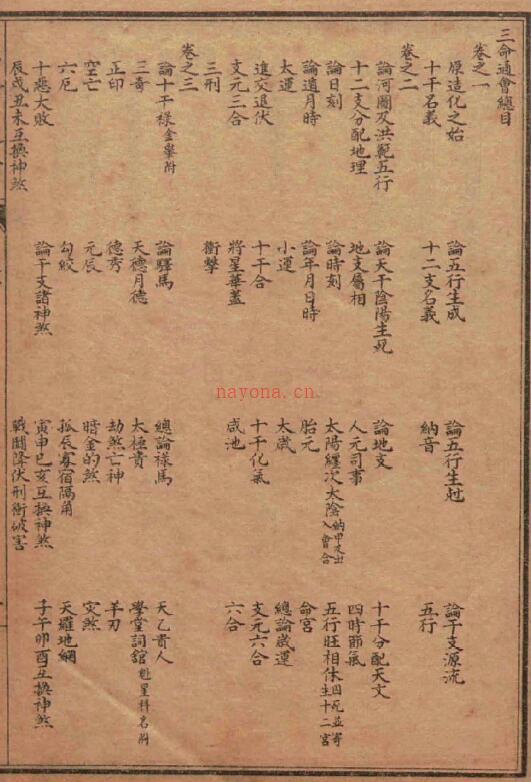 三命通會總目
卷之一
原造化之始 論五行生成 論五行生尅 論干支源流
十干名義 十二支名義 納音 五行
卷之二
論河圖及洪範五行 論天干陰陽生死 論地支 十干分配天文
十二支分配地理 地支屬相 人元司事 四時節氣
論日刻 論時刻 太陽纏次太陰納甲支出入會合 五行旺相休囚死並寄生十二宮
論遁月時 論年月日時 胎元 命宮
太運 小運 太歲 總論歲運
進交退伏 十干合 十干化氣 支元六合
支元三合 將星華蓋 咸池 六合
三刑 衝擊
卷之三
論十干祿金轝附 論驛馬 總論祿馬 天乙貴人
三奇 天德月德 太極貴 學堂詞舘魁星科名附
正印 德秀 劫煞亡神 羊刃
空亡 元辰 暗金的煞 災煞
六厄 勾絞 孤辰寡宿隔角 天羅地網
十惡大敗 論干支諸神煞 寅申巳亥互換神煞 子午卯酉互換神煞
辰戌丑未互換神煞 戰鬪降伏刑衝破害
nayona.cn